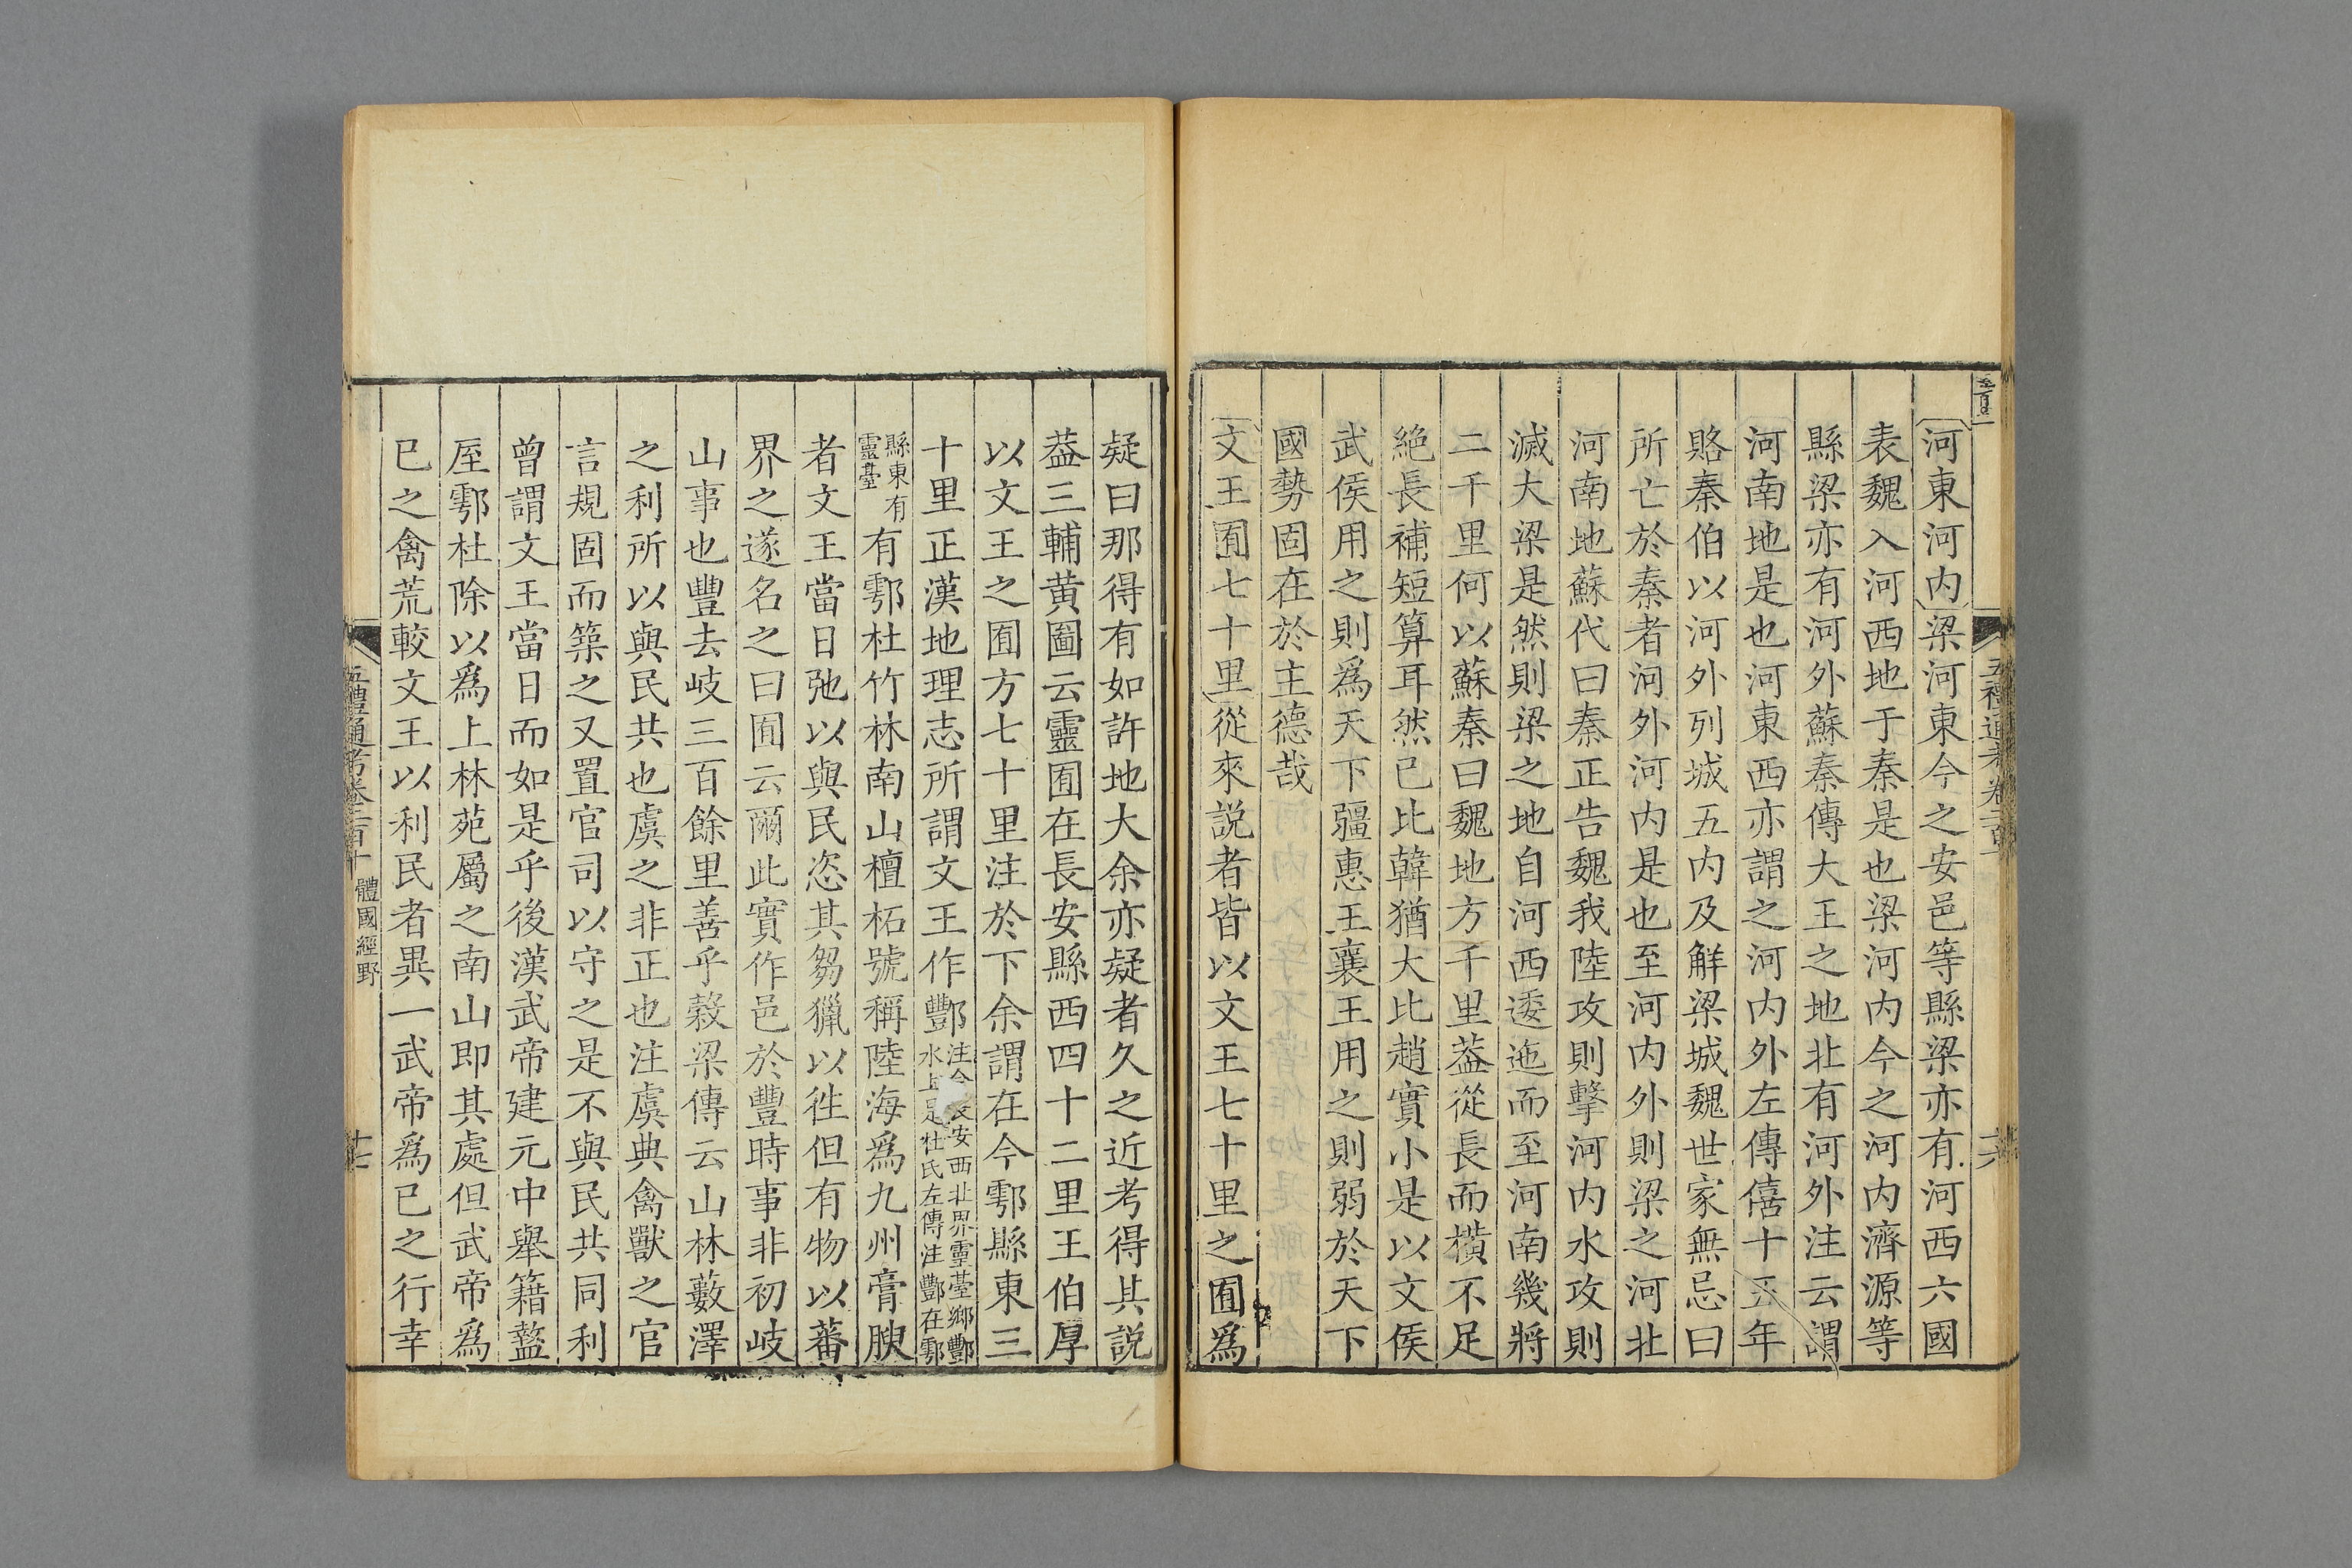 河東河内梁河東今之安邑等縣梁亦有河西六國
表魏入河西地于秦是也梁河内今之河内濟源等
縣梁亦有河外蘇秦傳大王之地北有河外注云謂
河南地是也河東西亦謂之河内外左傳僖十五年
賂秦伯以河外列城五内及解梁城魏世家無忌曰
所亡於秦者河外河内是也至河内外則梁之河北
河南地蘇代曰秦正告魏我陸攻則擊河内水攻則
滅大梁是然則梁之地自河西逶迤而至河南幾將
二千里何以蘇秦曰魏地方千里葢從長而橫不足
絶長補短算耳然已比韓猶大比趙實小是以文侯
武侯用之則爲天下疆惠王襄王用之則弱於天下
國勢固在於主德哉
文王囿七十里從來説者皆以文王七十里之囿爲
疑曰那得有如許地大余亦疑者久之近考得其説
葢三輔黄圖云靈囿在長安縣西四十二里王伯厚
以文王之囿方七十里注於下余謂在今鄠縣東三
十里正漢地理志所謂文王作酆注今長安西北界靈臺鄉酆
水上是杜氏左傳注酆在鄠
縣東有
靈臺有鄠杜竹林南山檀柘號稱陸海爲九州膏腴
者文王當日弛以與民恣其芻獵以徃但有物以蕃
界之遂名之曰囿云爾此實作邑於豐時事非初岐
山事也豐去岐三百餘里善乎榖梁傳云山林藪澤
之利所以與民共也虞之非正也注虞典禽獸之官
言規固而築之又置官司以守之是不與民共同利
曾謂文王當日而如是乎後漢武帝建元中舉籍盩
厔鄠杜除以爲上林苑屬之南山即其處但武帝爲
已之禽荒較文王以利民者異一武帝爲已之行幸
五禮通考卷二百十
體國經野
十七